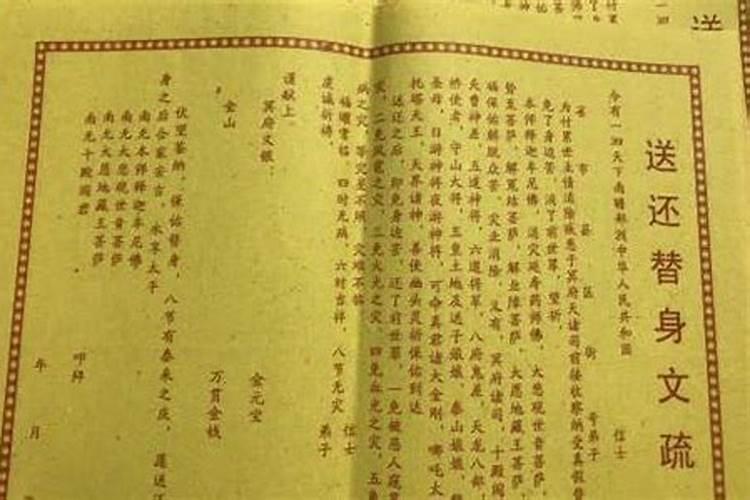 送还替身文疏
今有一四天下南赡部洲中华人民共和国
省 市 县 区 街 号弟子 信士
为付累世主情消除
于冥府天诸司前接收察纳受真假替
免了身边苦,消了前世罪,望祈
本师释迦牟尼佛,消灾延寿药师佛,大悲观世音菩萨
聱至菩萨,解冤结菩萨,解业障菩萨,大愿地藏王菩萨,
福保佑解脱众苦,灾业消除,又有,冥府诸司,十殿阎
天曹神差,五道神将,六道将军,八府鬼差,天龙八部,
桥使者,守山大将,五皇土地及送子娘娘,泰山娘娘,
圣母,日游神将夜游神将,可命真君诸大金刚,哪吒太
托塔天王,天界诸神,善使幽头灵祈保佑到达
送还之后,即免身边苦,还了前世罪,一免被恶人
灾,二免风雹之灾,三免火光之灾,四免血光之灾,五免
病之灾,等灾是不照,灾难不临
福曜常临 四时无病,六时吉祥,八节无灾 信士
虔诚祈祷, 弟子
谨献上
冥府文银: 金元宝
金山 万贯金钱
伏望鉴纳,保佑替身,八节有泰来之庆,愿送还
身之后合家安吉,永享太平
南无本师释迦牟尼佛
南无大悲观世音菩萨
南无大愿地藏王菩萨
南无十殿阎君
叩拜
年 月
送